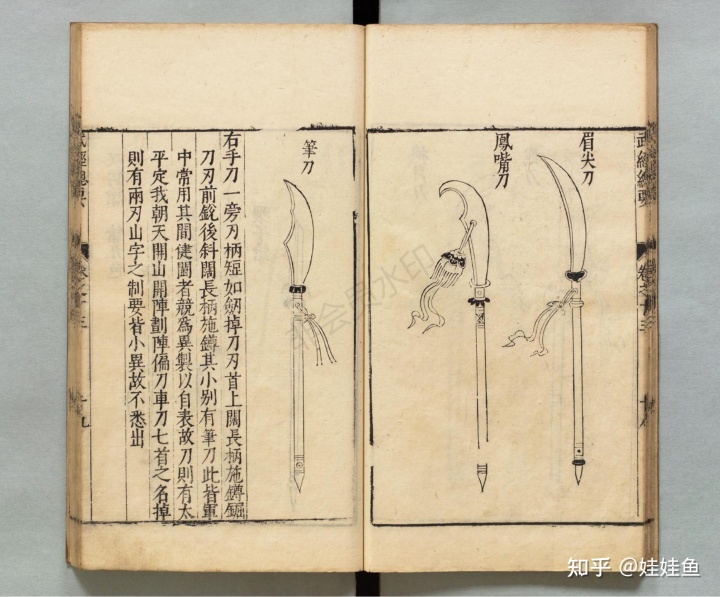 武經總要
眉尖刀
鳳嘴刀
筆刀
右手刀一旁刃柄短如劒掉刀刃首上闊長柄施鐏
刀刃前銳後斜闊長柄施鐏其小别有筆刀此皆軍
中常用其間健鬬者競為異製以自表故刀則有太
平定我朝天開山開陣劃陣偏刀車刀七首之名掉
則有兩刃山字之制要皆小異故不悉出
武經總要
会员水印
知乎 @娃娃鱼